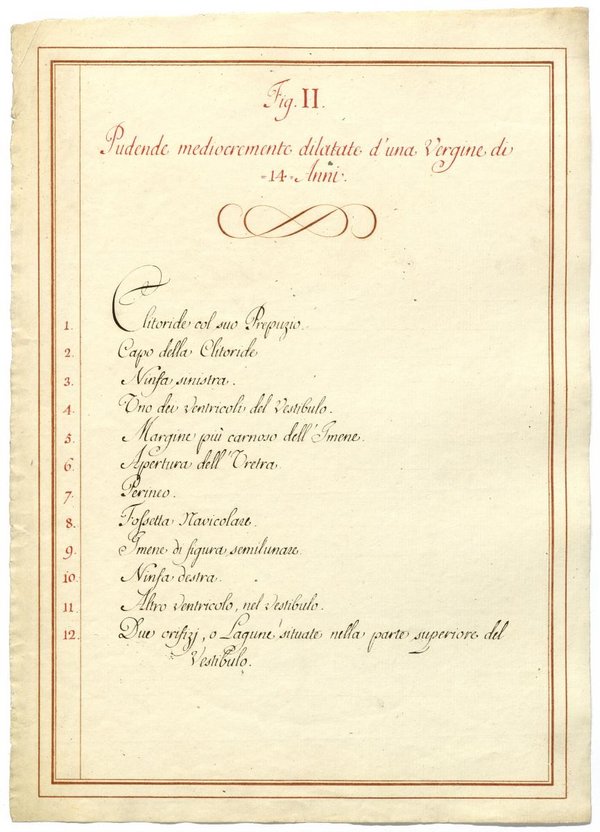 Fig. II.
Pudende mediocremente dilatate d'una Vergine di
=14= Anni.
1. Clitoride col suo Prepuzio.
2. Capo della Clitoride
3. Ninfa sinistra.
4. Uno dei ventricoli del Vestibulo.
5. Margine più carnoso dell'Imene.
6. Apertura dell'Uretra.
7. Perineo.
8. Fossetta Navicolare.
9. Imene di figura semilunare.
10. Ninfa destra.
11. Altro ventricolo, nel vestibulo.
12. Due orifizj, o Lagune situate nella parte superiore del
Vestibulo.